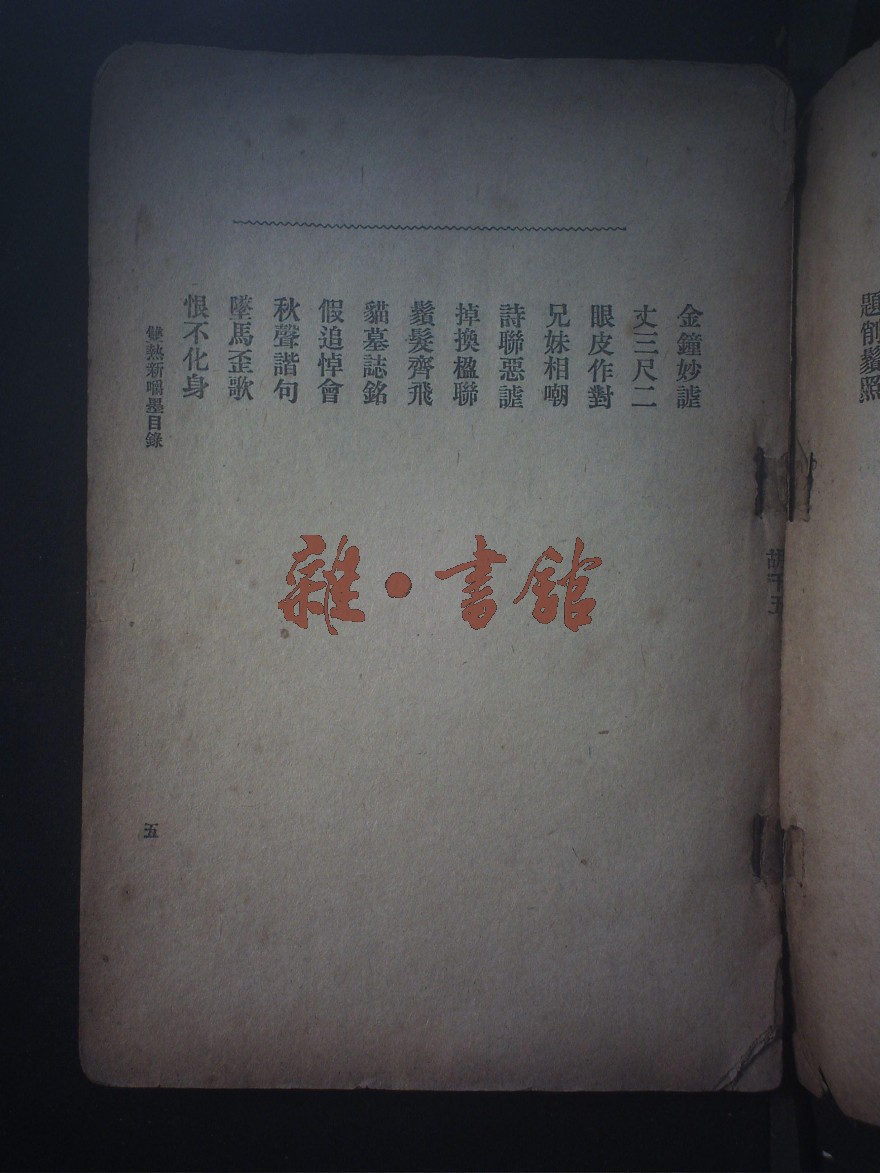 題削鬚照
胡千五
金鐘妙謔
丈三尺二
眼皮作對
兄妹相嘲
詩聯惡謔
掉換楹聯
鬚髮齊飛
貓墓誌銘
假追悼會
秋聲諧句
墜馬歪歌
恨不化身
雙熱新嚼墨目錄
五
雜·書館